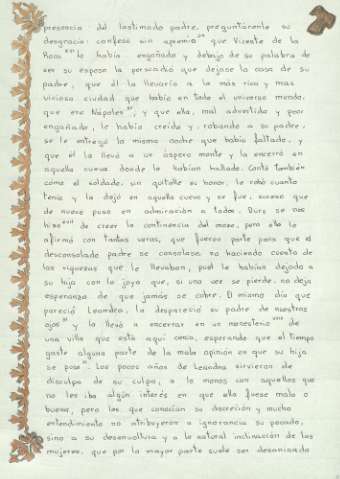 presencia del lastimado padre, preguntáronle su
desgracia; confesó sin apremio que Vicente de la
Roca la había engañado y debajo de su palabra de
ser su esposo la persuadió que dejase la casa de su
padre, que él la llevaría a la más rica y más
viciosa ciudad que había en todo el universo mundo,
que era Nápoles, y que ella, mal advertida y peor
engañada, le había creído y, robando a su padre,
se le entregó la misma noche que había faltado, y
que él la llevó a un áspero monte y la encerró en
aquella cueva donde la habían hallado. Contó también
cómo el soldado, sin quitalle su honor, le robó cuanto
tenía y la dejó en aquella cueva y se fue, suceso que
de nuevo puso en admiración a todos. Duro se nos
hizo de creer la continencia del mozo, pero ella lo
afirmó con tantas veras, que fueron parte para que el
desconsolado padre se consolase, no haciendo cuenta de
las riquezas que le llevaban, pues le habían dejado a
su hija con la joya que, si una vez se pierde, no deja
esperanza de que jamás se cobre. El mismo día que
pareció Leandra, la despareció su padre de nuestros
ojos y la llevó a encerrar en un monesterio de
una villa que está aquí cerca, esperando que el tiempo
gaste alguna parte de la mala opinión en que su hija
se puso. Los pocos años de Leandra sirvieron de
disculpa de su culpa, a lo menos con aquellos que
no les iba algún interés en que ella fuese mala o
buena; pero los que conocían su discreción y mucho
entendimiento no atribuyeron a ignorancia su pecado,
sino a su desenvoltura y a la natural inclinación de las
mujeres, que por la mayor parte suele ser desatinada